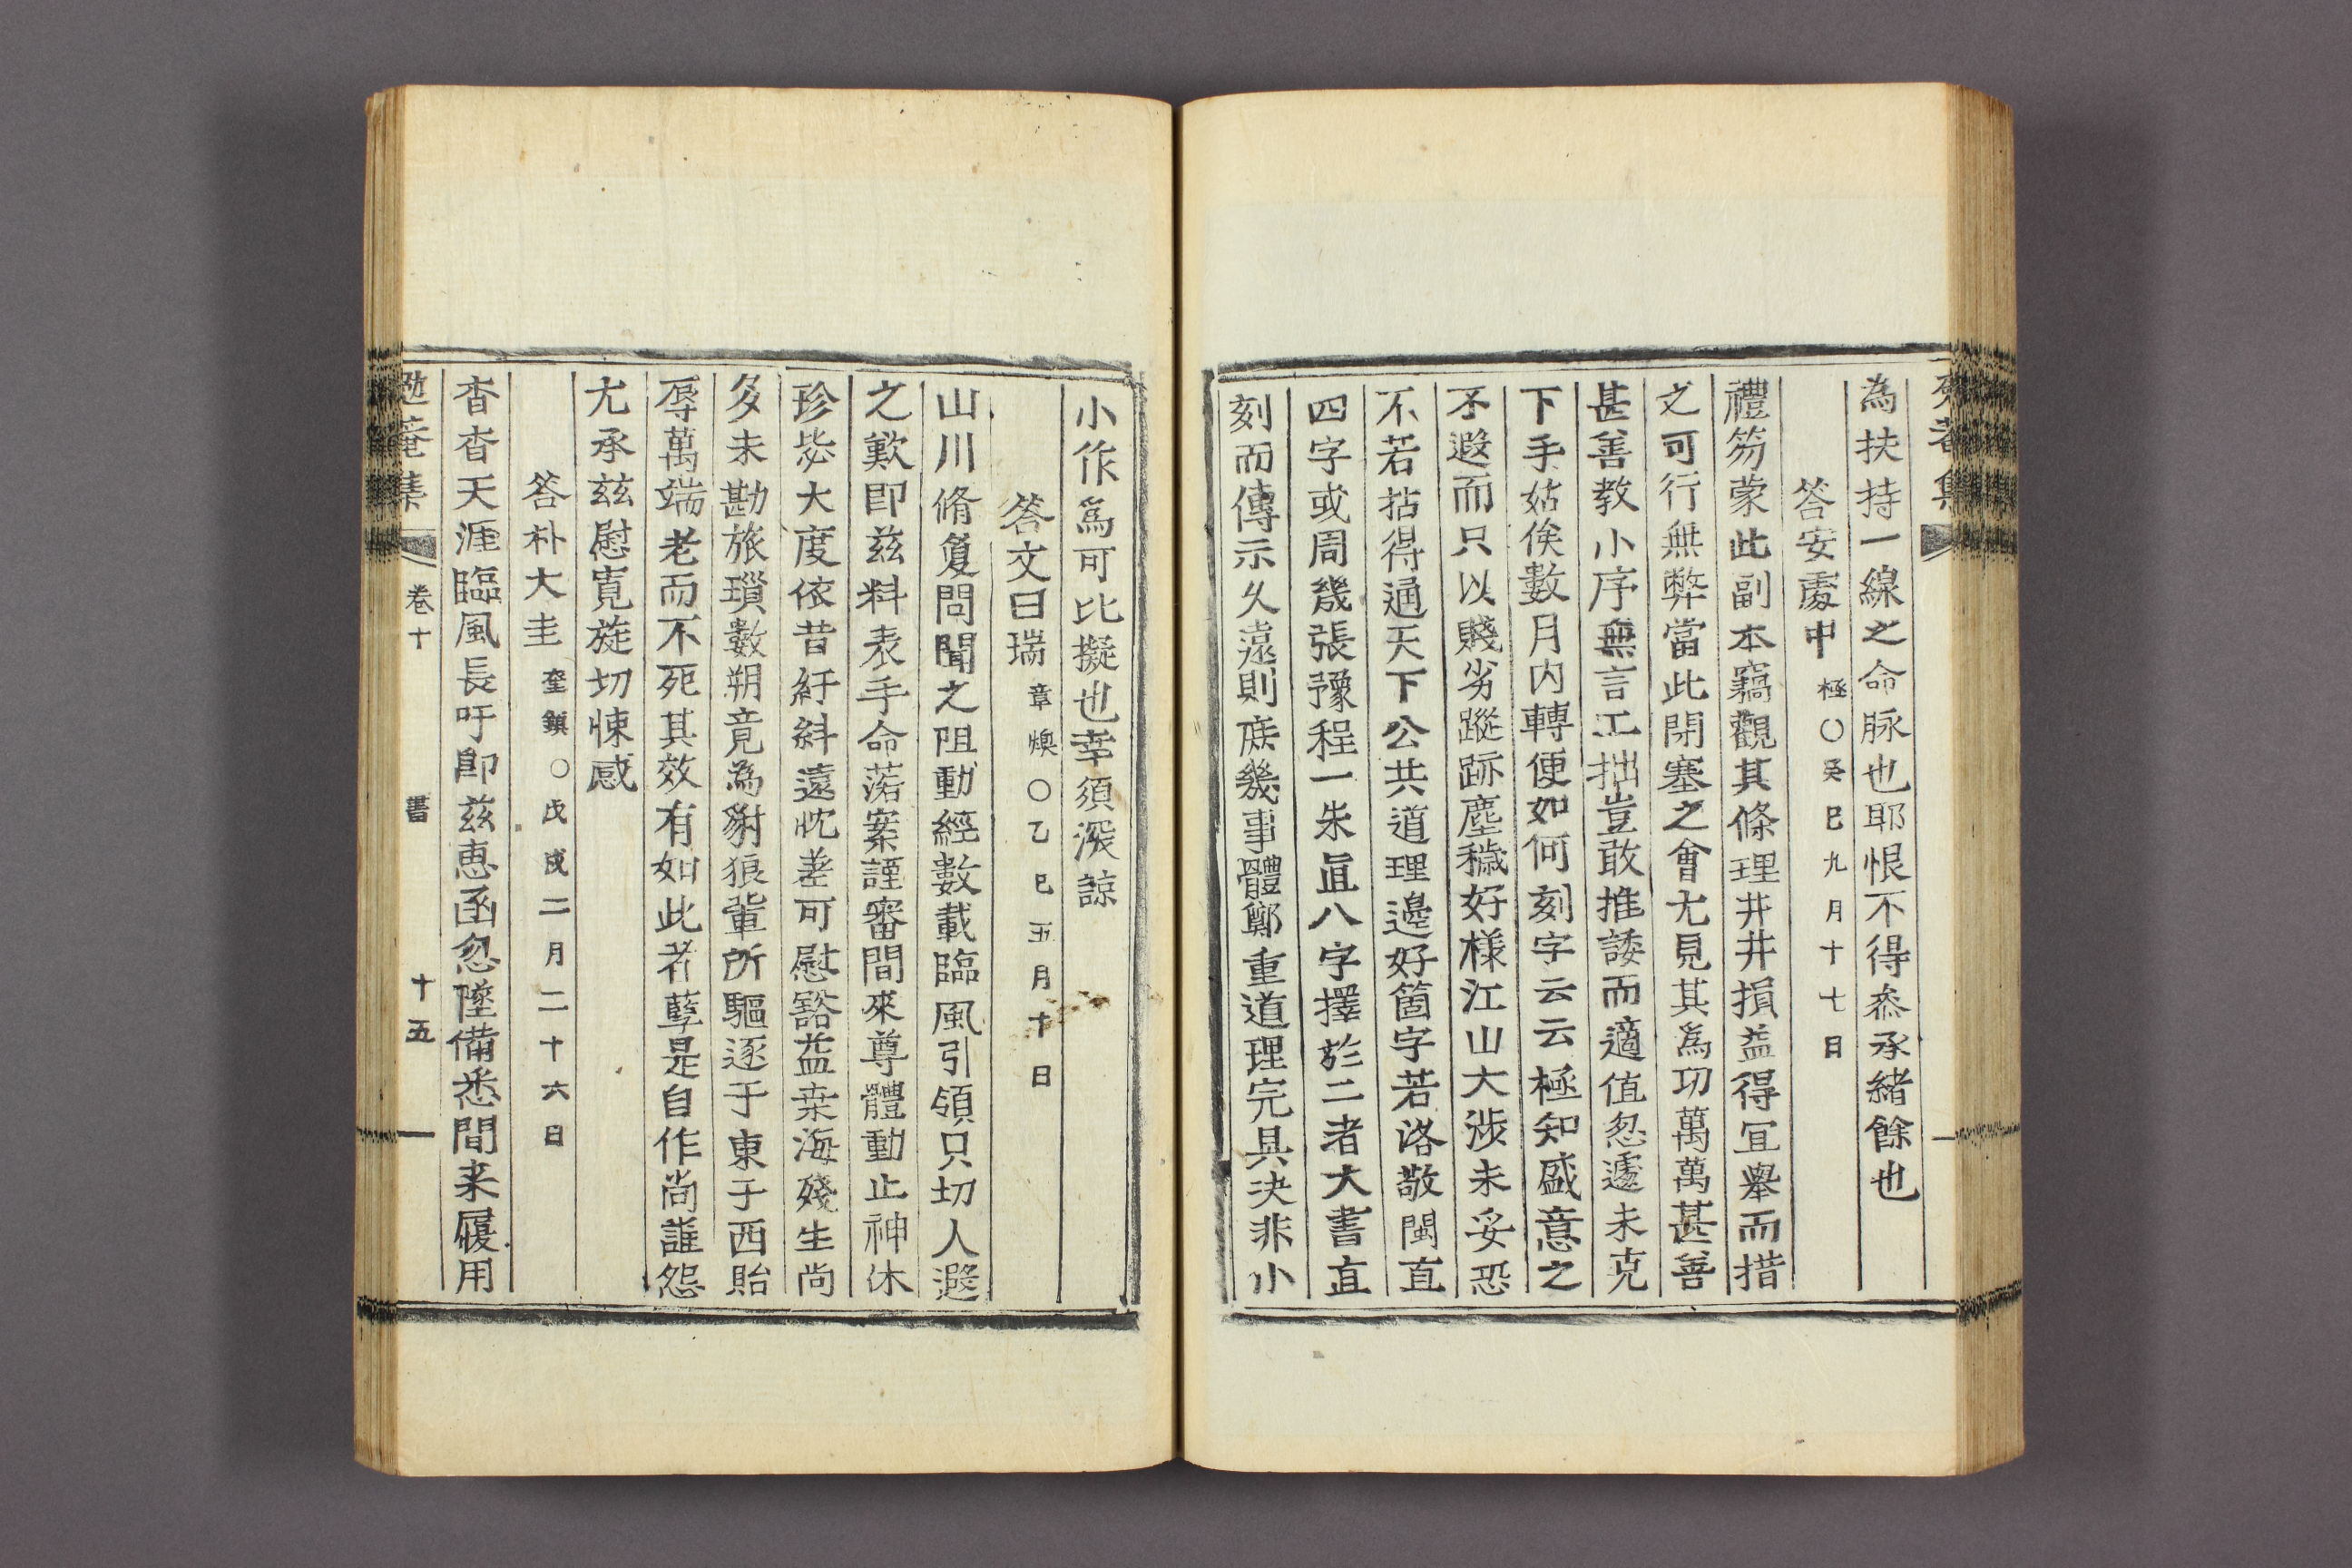 為扶持一線之命脉也耶恨不得叅承緒餘也
答安處中極○癸巳九月十七日
禮笏蒙此副本竊觀其條理井井損益得宜舉而措
之可行無弊當此閉塞之會尤見其爲功萬萬甚善
甚善教小序無言工拙豈敢推諉而適值忽遽未克
下手姑俟數月内轉便如何刻字云云極知盛意之
不遐而只以賤劣蹤跡塵穢好樣江山大涉未妥恐
不若拈得通天下公共道理邊好箇字若洛敬閩直
四字或周幾張豫程一朱直八字擇於二者大書直
刻而傳示久遠則庶幾事體鄭重道理完具決非小
小作爲可比擬也幸須深諒
答文曰瑞章煥○乙巳五月十日
山川脩敻問聞之阻動經數載臨風引領只切人遐
之歎卽玆料表手命落案謹審間來尊體動止神休
珍毖大度依昔紆紏遠忱差可慰豁益燕海殘生尚
多未勘旅瑣數朔竟為豺狼軰所驅逐于東于西貽
辱萬端老而不死其效有如此者孽是自作尚誰怨
尤承玆慰寬旋切悚感
答朴大圭奎鎮○戊戌二月二十六日
杳杳天涯臨風長吁卽玆惠函忽墜備悉間来履用
卷十 書 十五